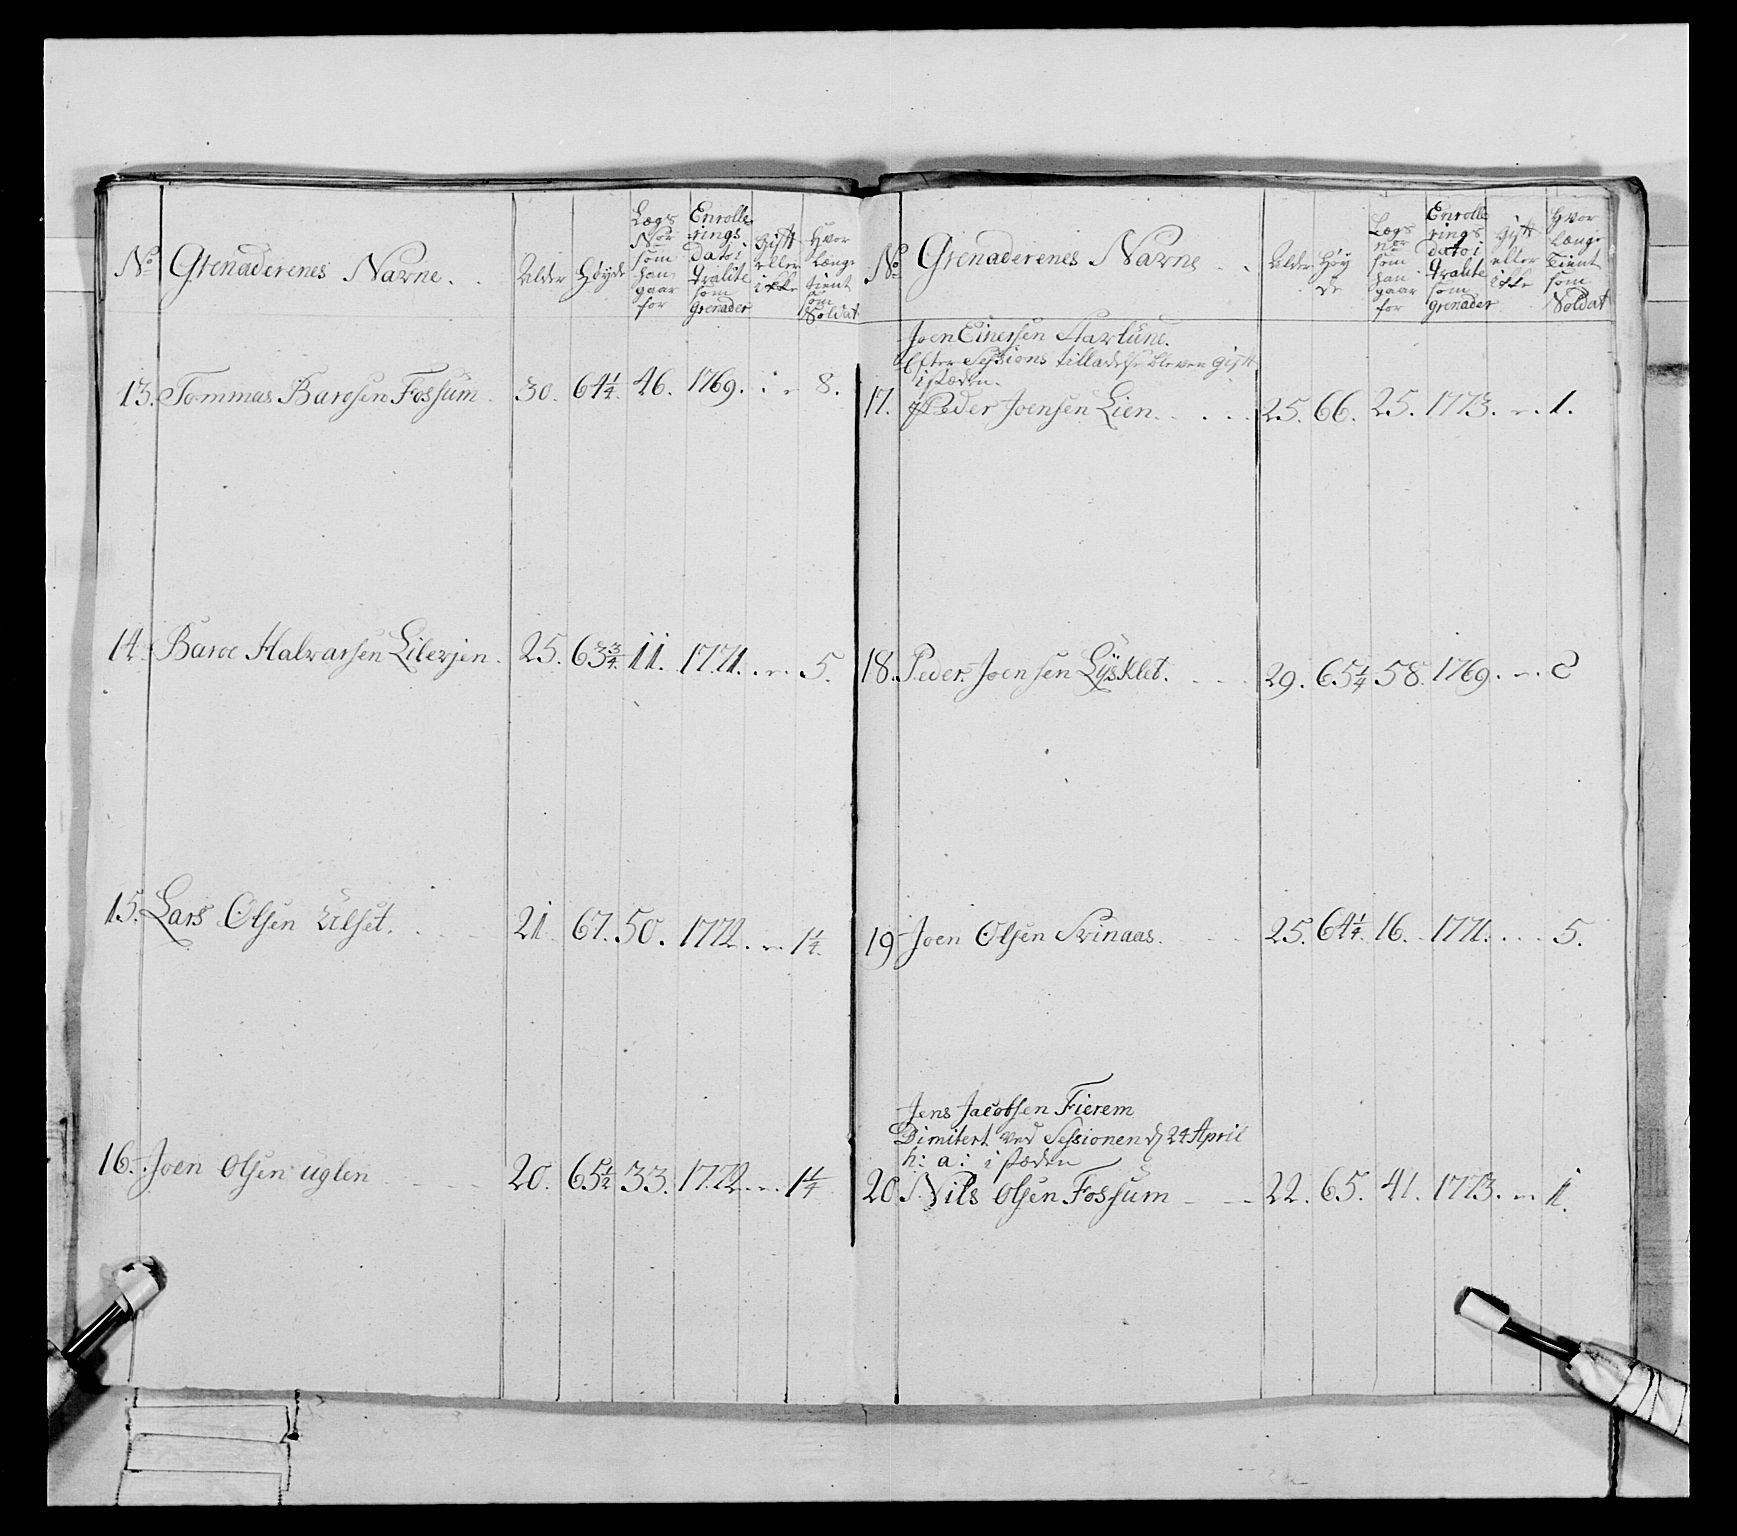 No Grenaderenes Navne. Alder Høyde Lægs Nor som han gaar for Enrolle rings dato i Qvalite som Grenader Gift eller ikke Hvor længe tient som Soldat
13. Tommas Barosen Fossum. 30. 64 1/4 46. 1769. 8.
14. Baroe Halvarsen Lilevjen. 25. 63 3/4 11. 1771. 5.
15. Lars Olsen Ulset. 21. 67. 50. 1772. 1 1/4.
16. Joen Olsen uglen 20. 65 1/2 33. 1772. 1 1/4
No Grenaderenes Navne Alder Høy de Lægs nor som han gaar for Enrolle rings dato i Qvalite som Grenader Gift eller ikke Hvor længe Tient som Soldat
Joen Einersen
Efter Sessions tilladelse bleven Gift
i stæden.
17. Peder Joensen Lien. 25. 66. 25. 1773. 1.
18. Peder Joensen Lysklet. 29. 65 1/4 58. 1769.
19 Joen Olsen Svinaas. 25. 64 1/4. 16. 1771. 5.
Jens Jacobsen Fierem
Dimitert ved Sessionen d 24 April
h: a: i stæden
20. Nils Olsen Fossum 22. 65. 41. 1773. 1.